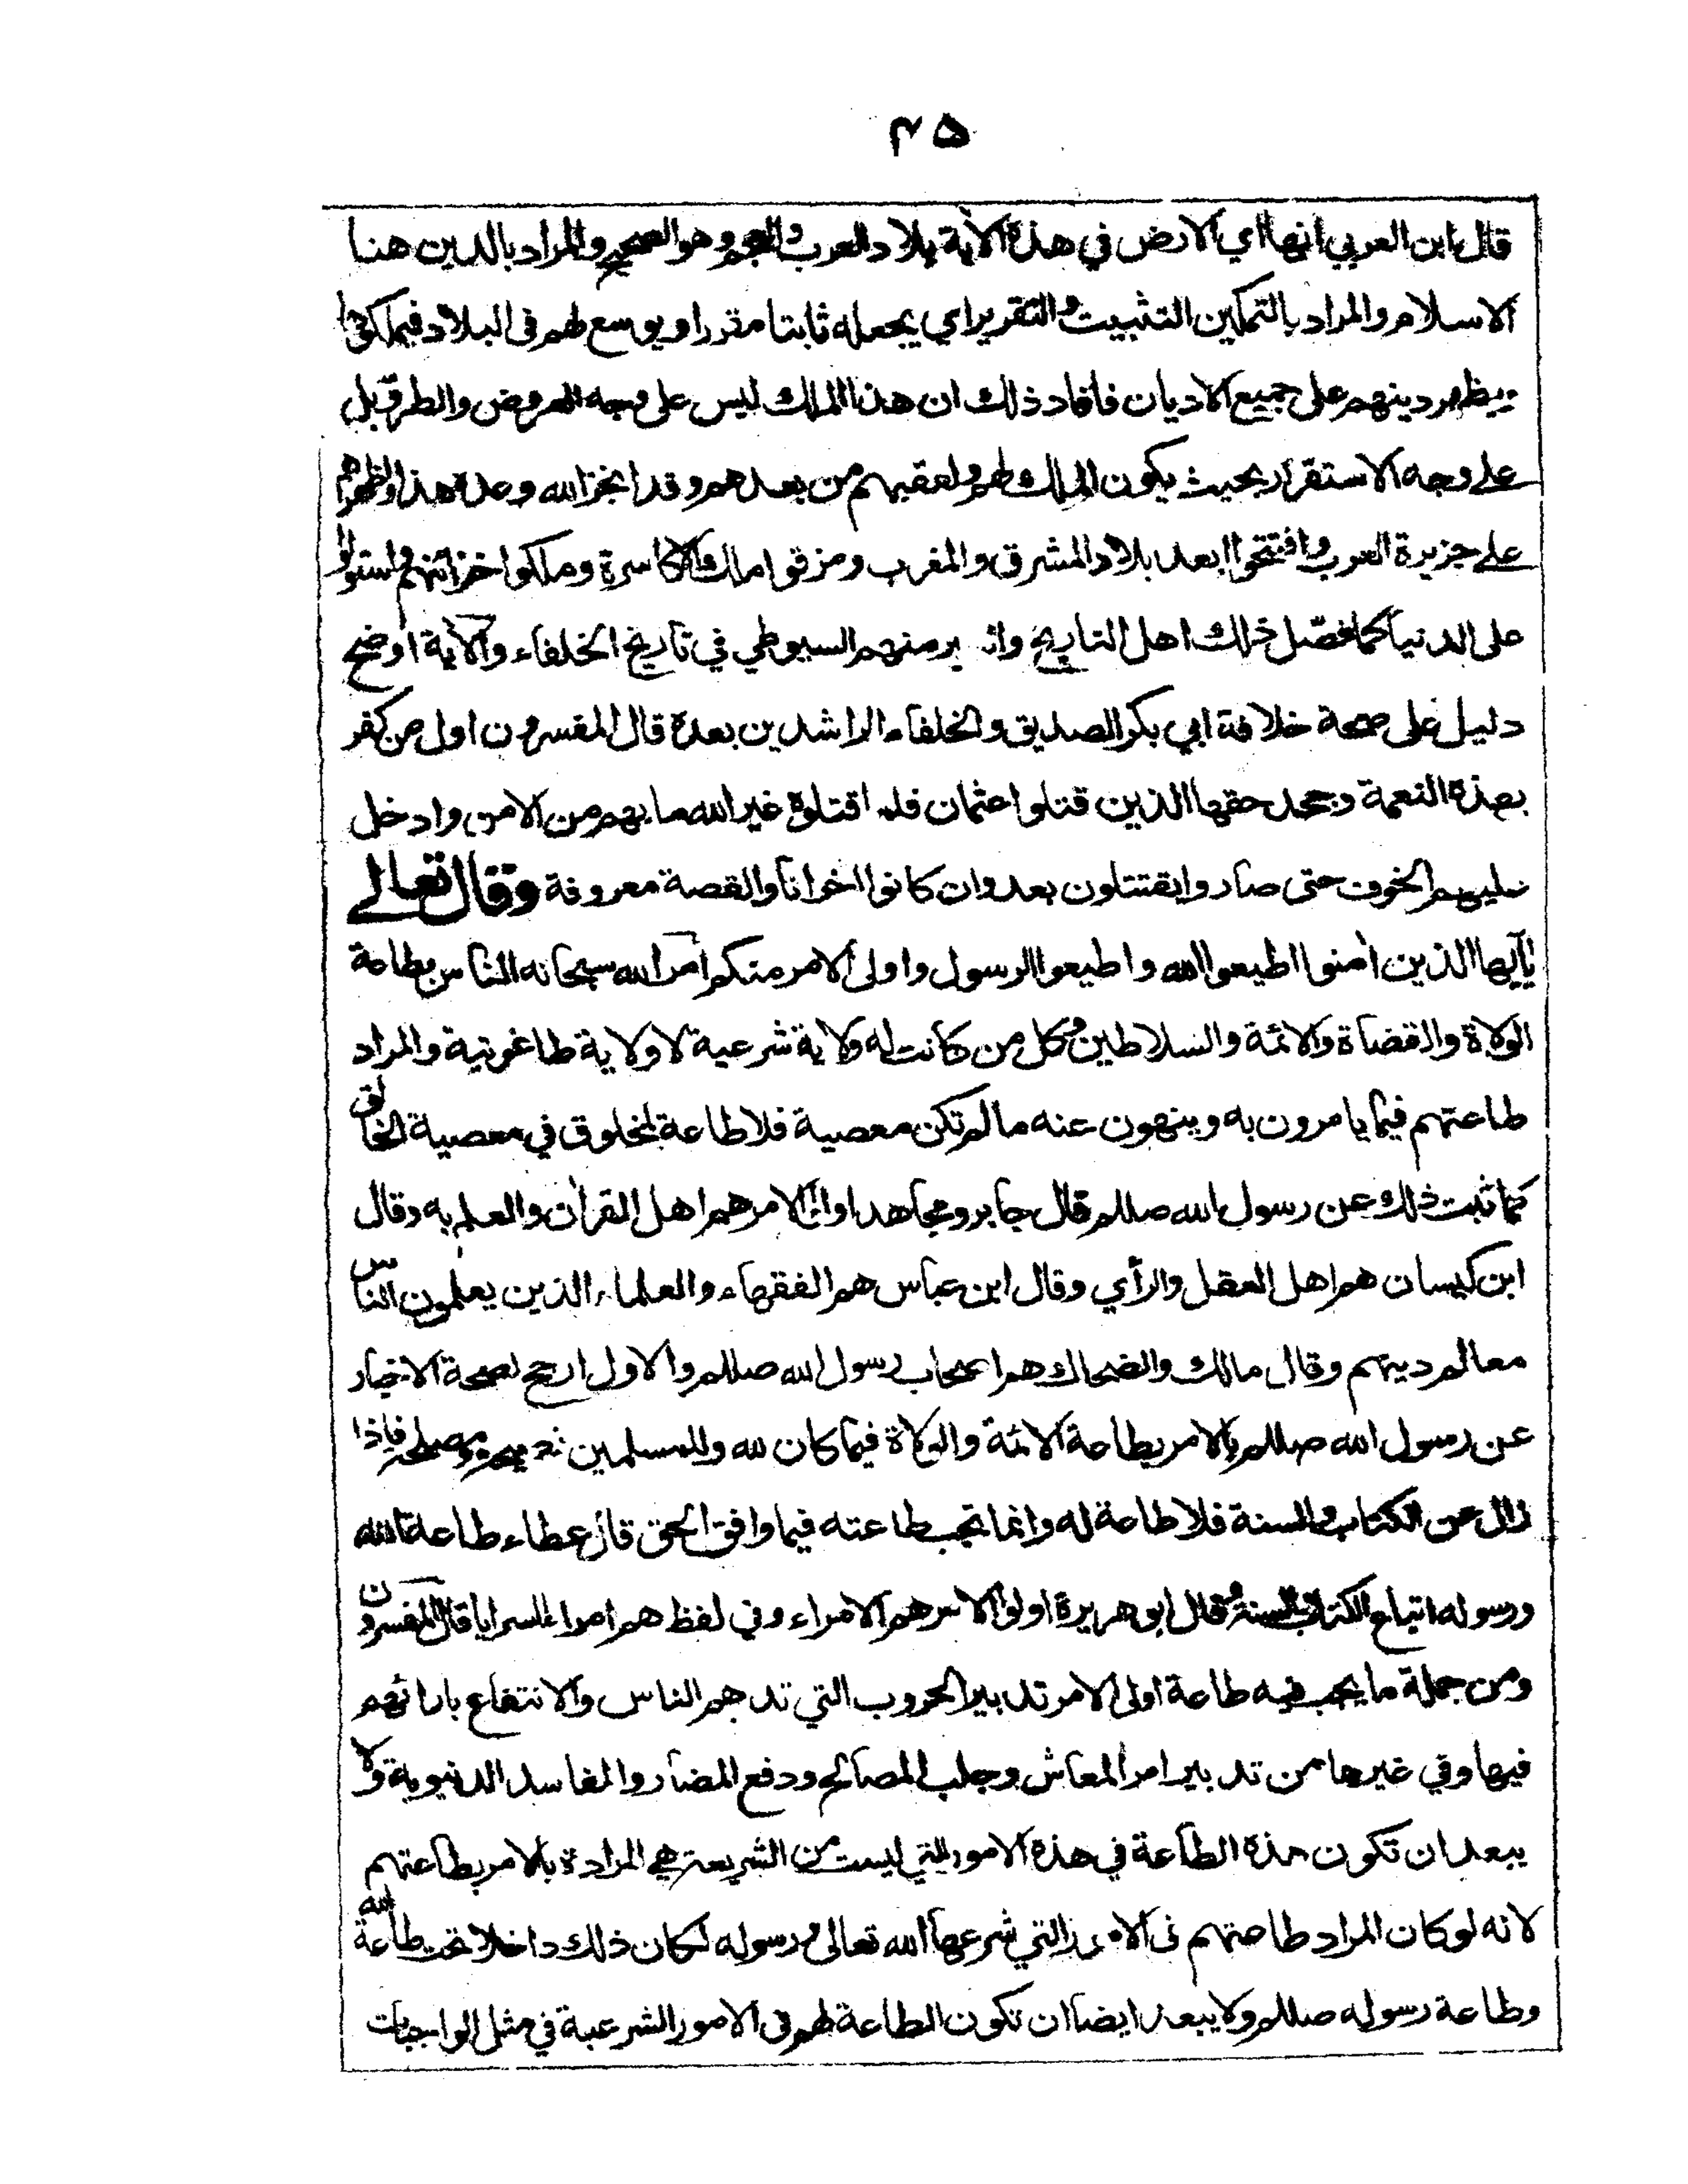 ٢٥
قال ابن العربي انها اي الارض في هذه الآية بلاد العرب والعجم وهو الصحيح والمراد بالدين هنا
الاسلام والمراد بالتمكين التثبيت والتقرير اي يجعله ثابتا مقررا ويوسع لهم في البلاد فيملكوها
ويظهر دينهم على جميع الاديان فافاد ذلك ان هذا الملك ليس على وجه العروض والطرق بل
على وجه الاستقرار بحيث يكون الملك لهم ولعقبهم من بعدهم وقد انجز الله وعده هذا واظهرهم
على جزيرة العرب وافتتحوا بعد بلاد المشرق والمغرب ومزقوا ملك الاكاسرة وملكوا خزائنهم واستولوا
على الدنيا كما فصّل ذلك اهل التاريخ منهم السيوطي في تاريخ الخلفاء والآية اوضح
دليل على صحة خلافة ابي بكر الصديق والخلفاء الراشدين بعده قال المفسرون اول من كفر
بهذه النعمة وجحد حقها الذين قتلوا عثمان فلما قتلوه غير الله ما بهم من الامن وادخل
عليهم الخوف حتى صاروا يقتتلون بعد وان كانوا اخوانا والقصة معروفة وقال تعالى
يآيها الذين امنوا اطيعوا الله واطيعوا الرسول واولى الامر منكم امر الله سبحانه الناس بطاعة
الولاة والقضاة والائمة والسلاطين وكل من كانت له ولاية شرعية لا ولاية طاغوتية والمراد
طاعتهم فيما يامرون به وينهون عنه ما لم تكن معصية فلا طاعة لمخلوق في معصية الخالق
كما ثبت ذلك عن رسول الله صللم قال جابر ومجاهد اولى الامر هم اهل القرآن والعلم به وقال
ابن كيسان هم اهل العقل والرأي وقال ابن عباس هم الفقهاء والعلماء الذين يعلمون الناس
معالم دينهم وقال مالك والضحاك هم اصحاب رسول الله صللم والاول ارجح لصحة الاخبار
عن رسول الله صللم بالامر بطاعة الائمة والولاة فيما كان لله وللمسلمين ومصلحة فاذا
زال عن الكتاب والسنة فلا طاعة له وانما تجب طاعته فيما وافق الحق قال عطاء طاعة الله
ورسوله اتباع الكتاب والسنة وقال ابو هريرة اولو الامر هم الامراء وفي لفظ هم امراء السرايا قال المفسرون
ومن جملة ما يجب فيه طاعة اولى الامر تدبير الحروب التي تدهم الناس والانتفاع بارائهم
فيها وفي غيرها من تدبير امر المعاش وجلب المصالح ودفع المضار والمفاسد الدنيوية ولا
يبعد ان تكون هذه الطاعة في هذه الامور التي ليست من الشريعة هي المرادة بالامر بطاعتهم
لانه لو كان المراد طاعتهم في الامور التي شرعها الله تعالى ورسوله لكان ذلك داخلا تحت طاعة الله
وطاعة رسوله صللم ولا يبعد ايضا ان تكون الطاعة لهم في الامور الشرعية في مثل الواجبات